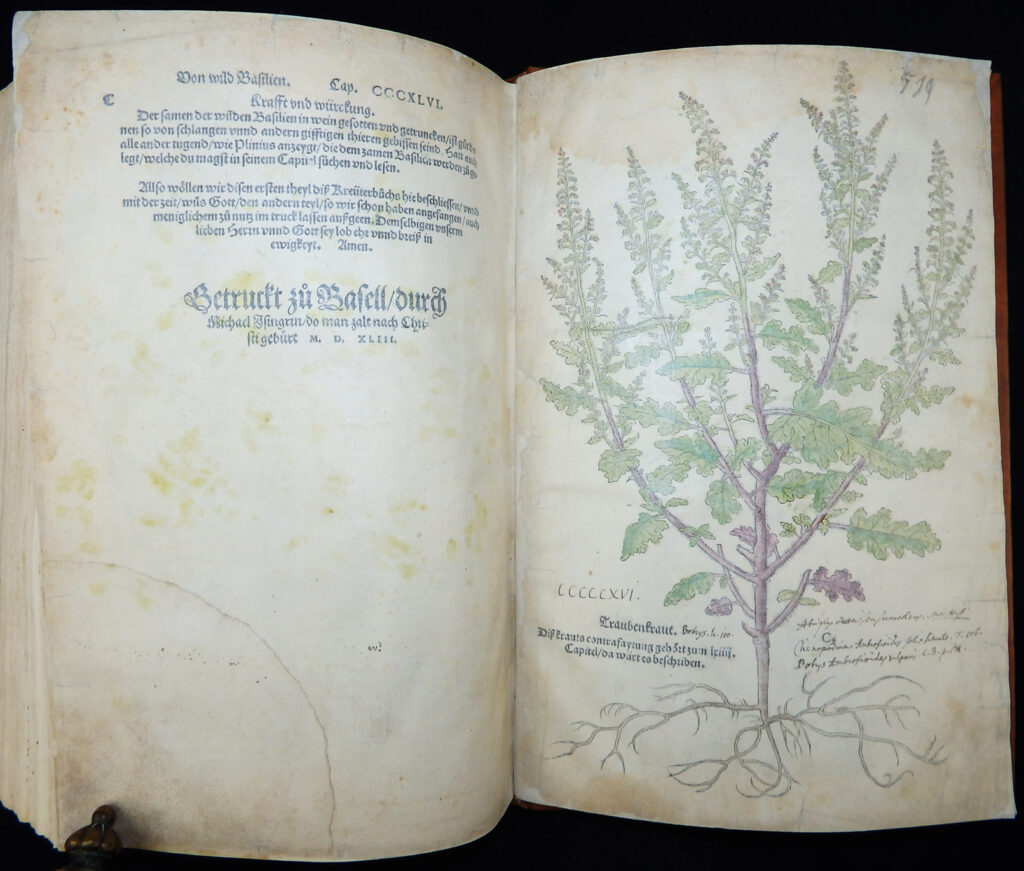 Von wild Basilien. Cap. CCCXLVI.
C Krafft vnd würckung.
Der samen der wilden Basilien in wein gesotten vnd getruncken/ist gůt de
nen so von schlangen vnnd andern gifftigen thieren gebissen seind. Hatt auch
alle ander tugend/wie Plinius anzeygt/die dem zamen Basilien werden zůge
legt/welche du magst in seinem Capitel sůchen vnd lesen.
Allso wöllen wir disen ersten theyl diß Kreüterbůchs hie beschliessen/vnnd
mit der zeit/wils Gott/den andern teyl/so wir schon haben angefangen/auch
meniglichem zů nutz im truck lassen außgeen. Demselbigen vnserm
lieben Herrn vnnd Gott sey lob ehr vnnd breiß in
ewigkeyt. Amen.
Getruckt zů Basell/durch
Michael Isingrin/do man zalt nach Chri-
sti gebürt M. D. XLIII.
519
CCCCCXVI.
Traubenkraut. Botrys.
Diß krauts contrafaytung gehört zum lxiiij.
Capitel/da würt es beschriben.
Chenopodium Ambrosioides folio sinuato. T. 506.
Botrys Ambrosioides vulgaris. C. B. p.